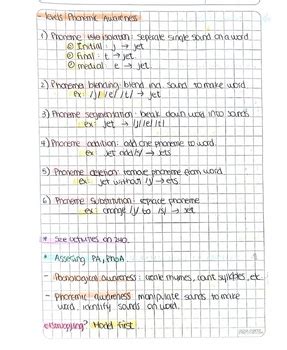 levels Phonemic Awareness
1) Phoneme isolation: seperate single sound on a word
① Initial: j → jet
② Final: t → jet
③ medial: e → jet
2) Phoneme blending: blend ind. sound to make word
ex: /j/ /e/ /t/ → jet
3) Phoneme segmentation: break down word into sounds
ex: jet → /j/ /e/ /t/
4) Phoneme addition: add one phoneme to word
ex: jet add /s/ → jets
5) Phoneme deletion: remove phoneme from word
ex: jet without /j/ → ets
6) Phoneme Substitution: replace phoneme
ex: change /j/ to /s/ →
* See activities on 240.
* Assessing PA, PhoA
- Phonological awareness: create rhymes, count syllables, etc
- Phonemic awareness manipulate sounds to make
word, identify sounds on word.
? Model First